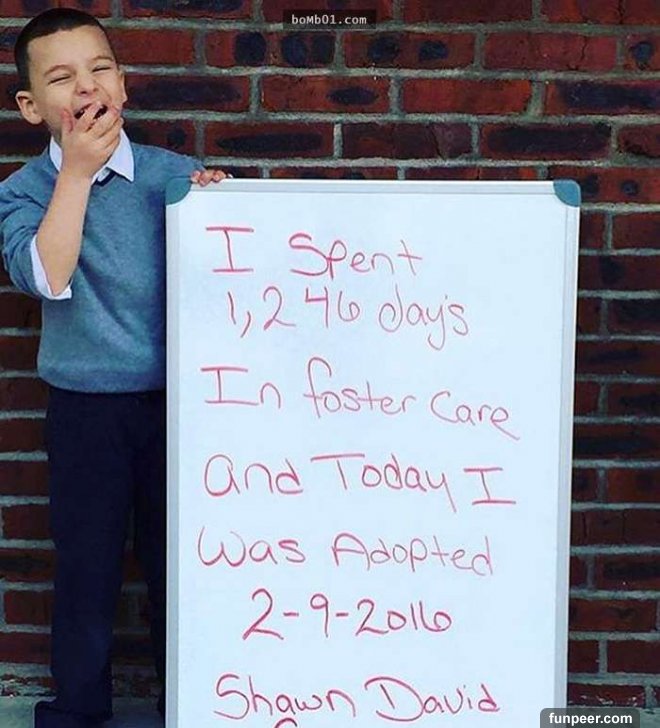 boMb01.com
I Spent
1,246 days
In foster care
and Today I
Was Adopted
2-9-2016
Shawn David
funpeer.com